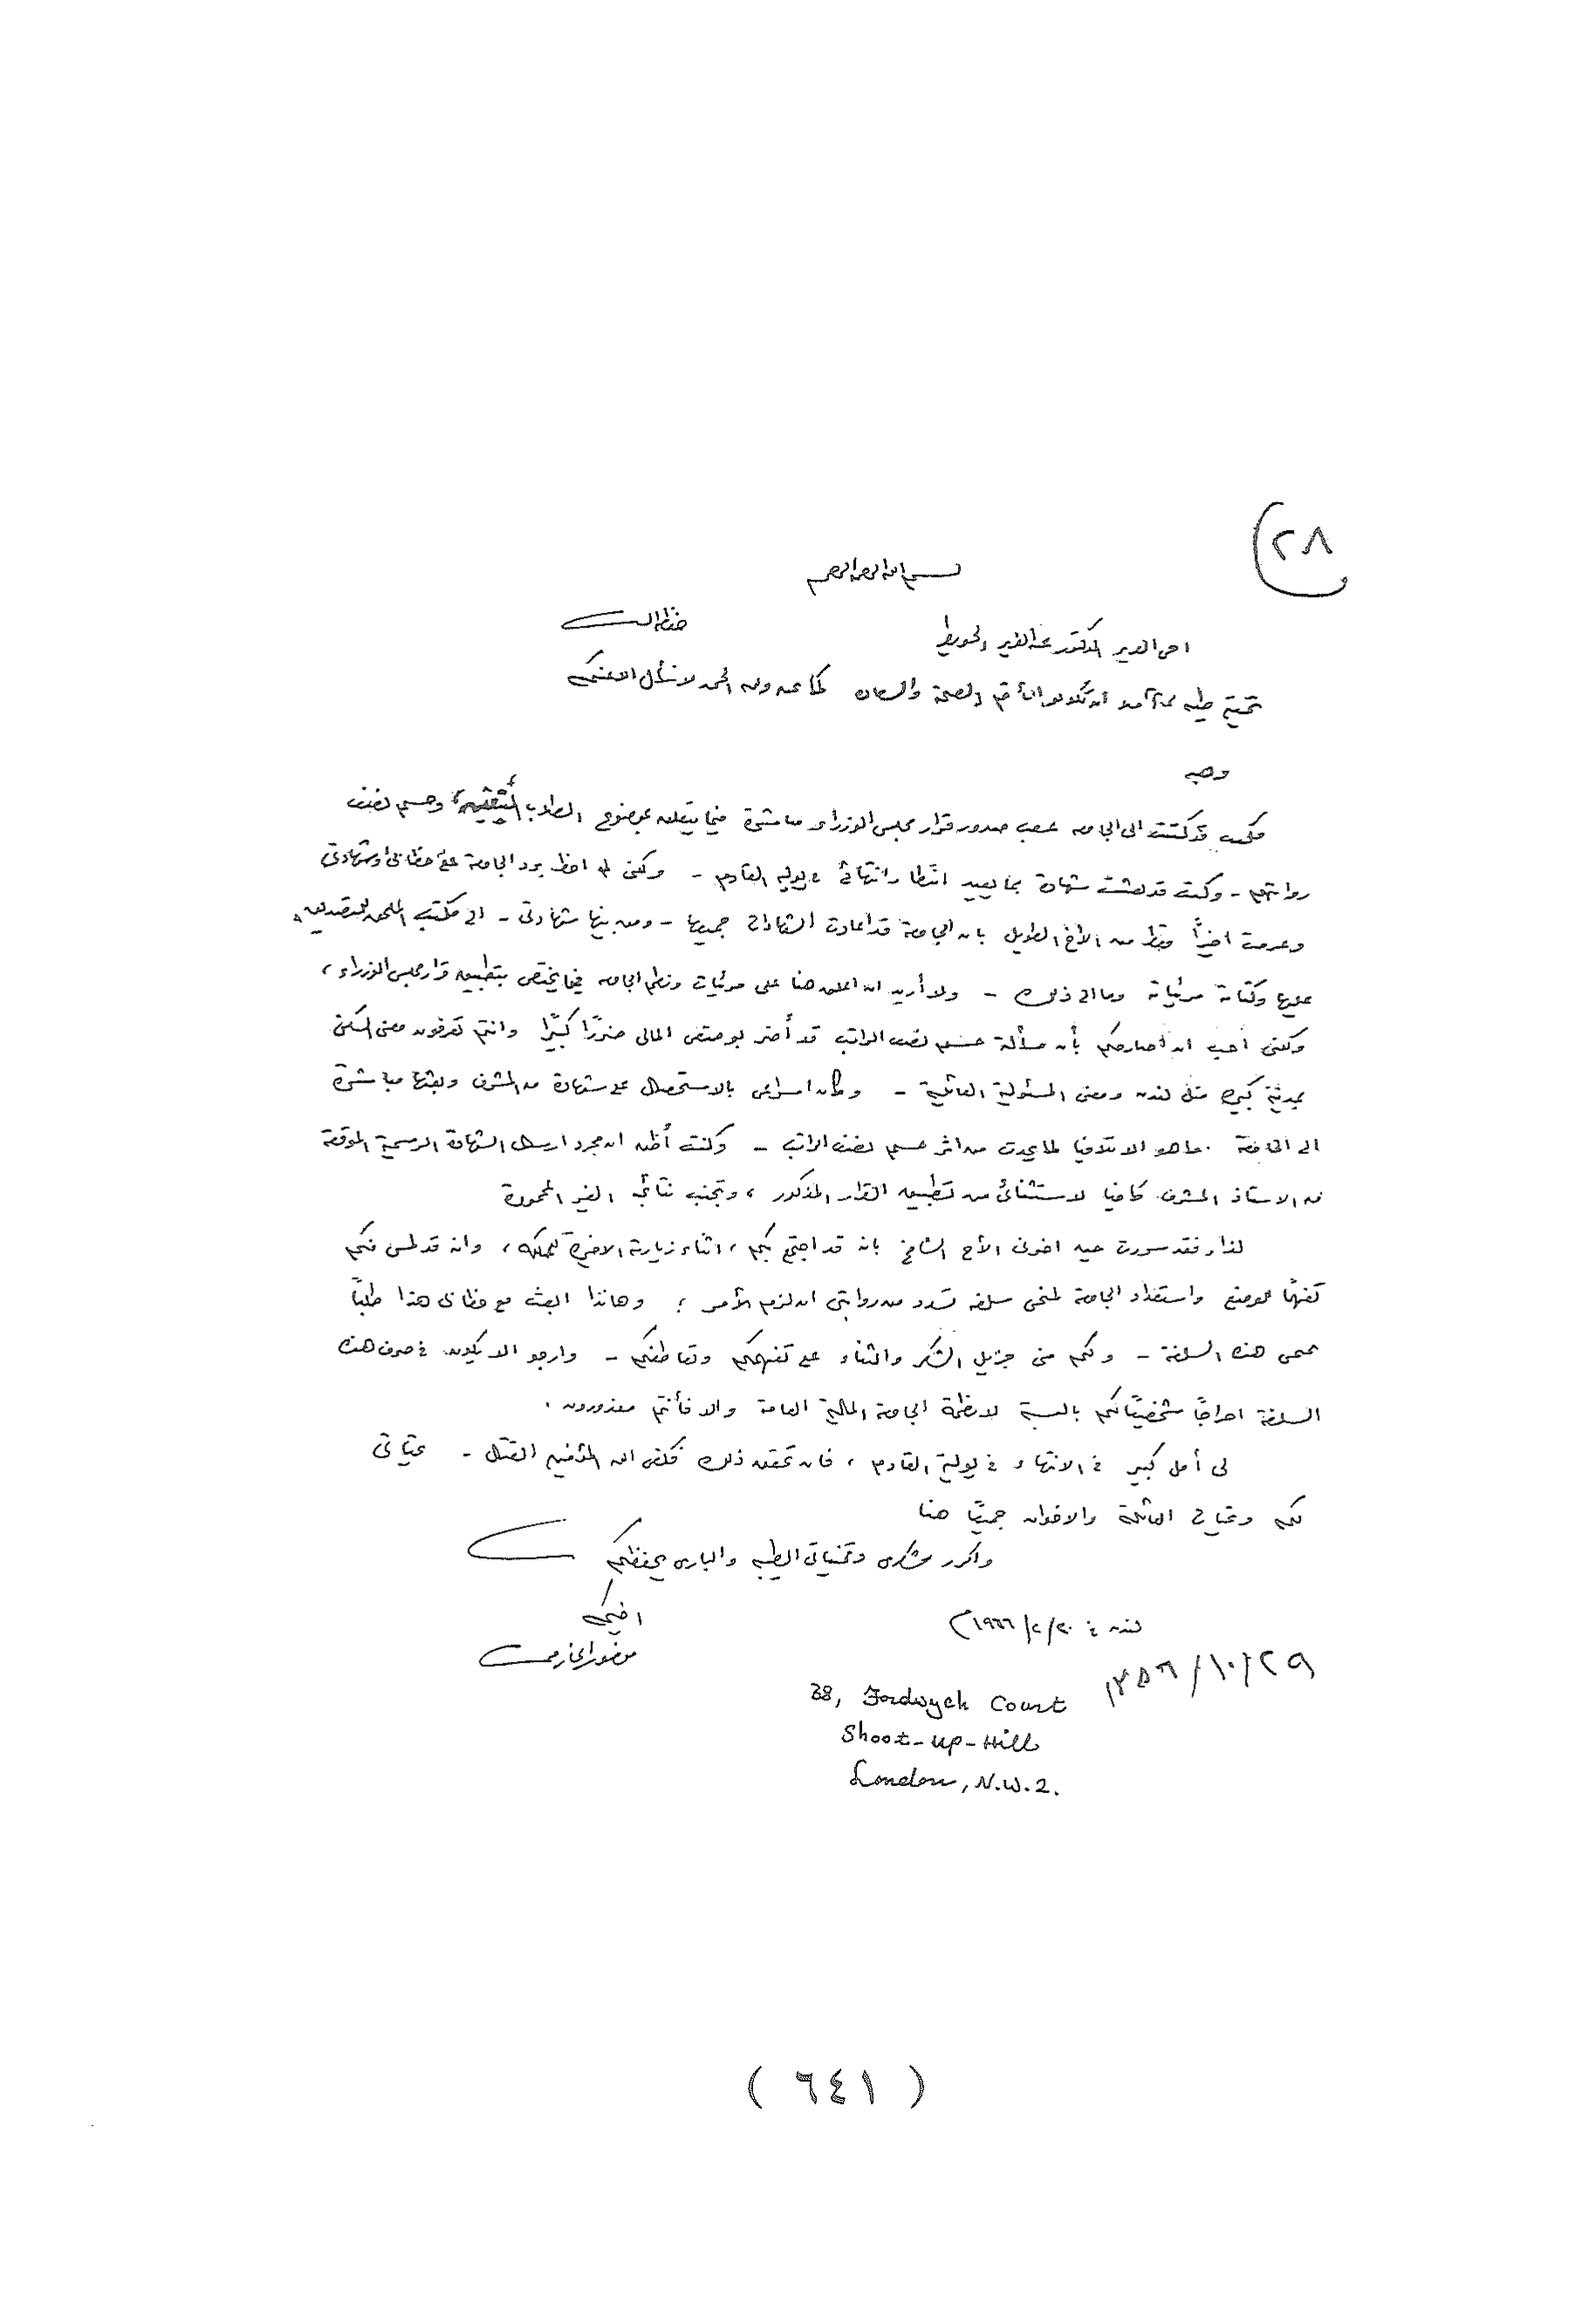 (٢٨
بسم الله الرحمن الرحيم
اخي العزيز الدكتور عبدالعزيز الخويطر حفظه الله
تحية طيبة آملا ان تكونوا الصحة والسعادة كما نحن ولله الحمد لا نسأل الا عنكم
وبعد
فكنت قد كتبت الى الجامعة عقب صدور قرار مجلس الوزراء مباشرة فيما يتعلق بموضوع الطلاب وحسم نصف
رواتبهم - وكنت قد بعثت شهادة بما يفيد انتظار انتهائي في يوليه القادم - ولكنى لم احظ برد الجامعة على خطابى او شهادتى
وعرفت اخيراً فقط من الأخ الطويل بان الجامعة قد اعادت الشهادات جميعها - ومن بينها شهادتى - الى مكتب الملحق للتصديق
عليها وكتابة مرئياته وما الى ذلك - ولا أريد ان اعلق هنا على مرئيات ونظم الجامعة فيما يختص بتطبيق قرار مجلس الوزراء ،
ولكنى احب ان اصارحكم بأن مسألة حسم نصف الراتب قد أضر بوضعى المالى ضررًا كبيرًا وانتم تعرفون معنى السكن
بمدينة كبيرة مثل لندن ومعنى المسئولية العائلية - وكان اسراعى بالاستحصال على شهادة من المشرف وبعثها مباشرة
الى الجامعة ما هو الا تلافيا لما يحدث من اثر حسم نصف الراتب - وكنت أظن ان مجرد ارسال الشهادة الرسمية الموقعة
من الاستاذ المشرف كافيا لاستثنائى من تطبيق القرار المذكور ، وتجنب نتائجه الغير المحمودة
لذا فقد سررت حين اخبرنى الأخ الشامخ بانه قد اجتمع بكم ، اثناء زيارته الاخيرة للمملكة ، وانه قد لمس منكم
تفهمًا للوضع واستعداد الجامعة لمنحى سلفه تسدد من رواتبى ان لزم الأمر ؛ وهانذا ابعث مع خطابى هذا طلبًا
بمنحى هذه السلفة - ولكم منى جزيل الشكر والثناء على تفهمكم وتعاطفكم - وارجو الا يكون فى صرف هذه
السلفة احراجًا شخصيًا لكم بالنسبة لانظمة الجامعة المالية العامة والا فأنتم معذورون .
لى أمل كبير فى الانتهاء فى يوليه القادم ، فان تحقق ذلك فكفى الله المؤمنين القتال - تحياتى
لكم وتحيات العائلة والاخوان جميعًا هنا
واكرر شكرى وتمنياتى الطيبه والبارى يحفظكم
اخيكم
لندن في ٢٠/٢/١٩٦٦م
منصور الحازمي
٢٩/١٠/١٣٨٥
38, Fordwych Court
Shoot-up-Hill
London, N.W.2.
( ٦٤١ )